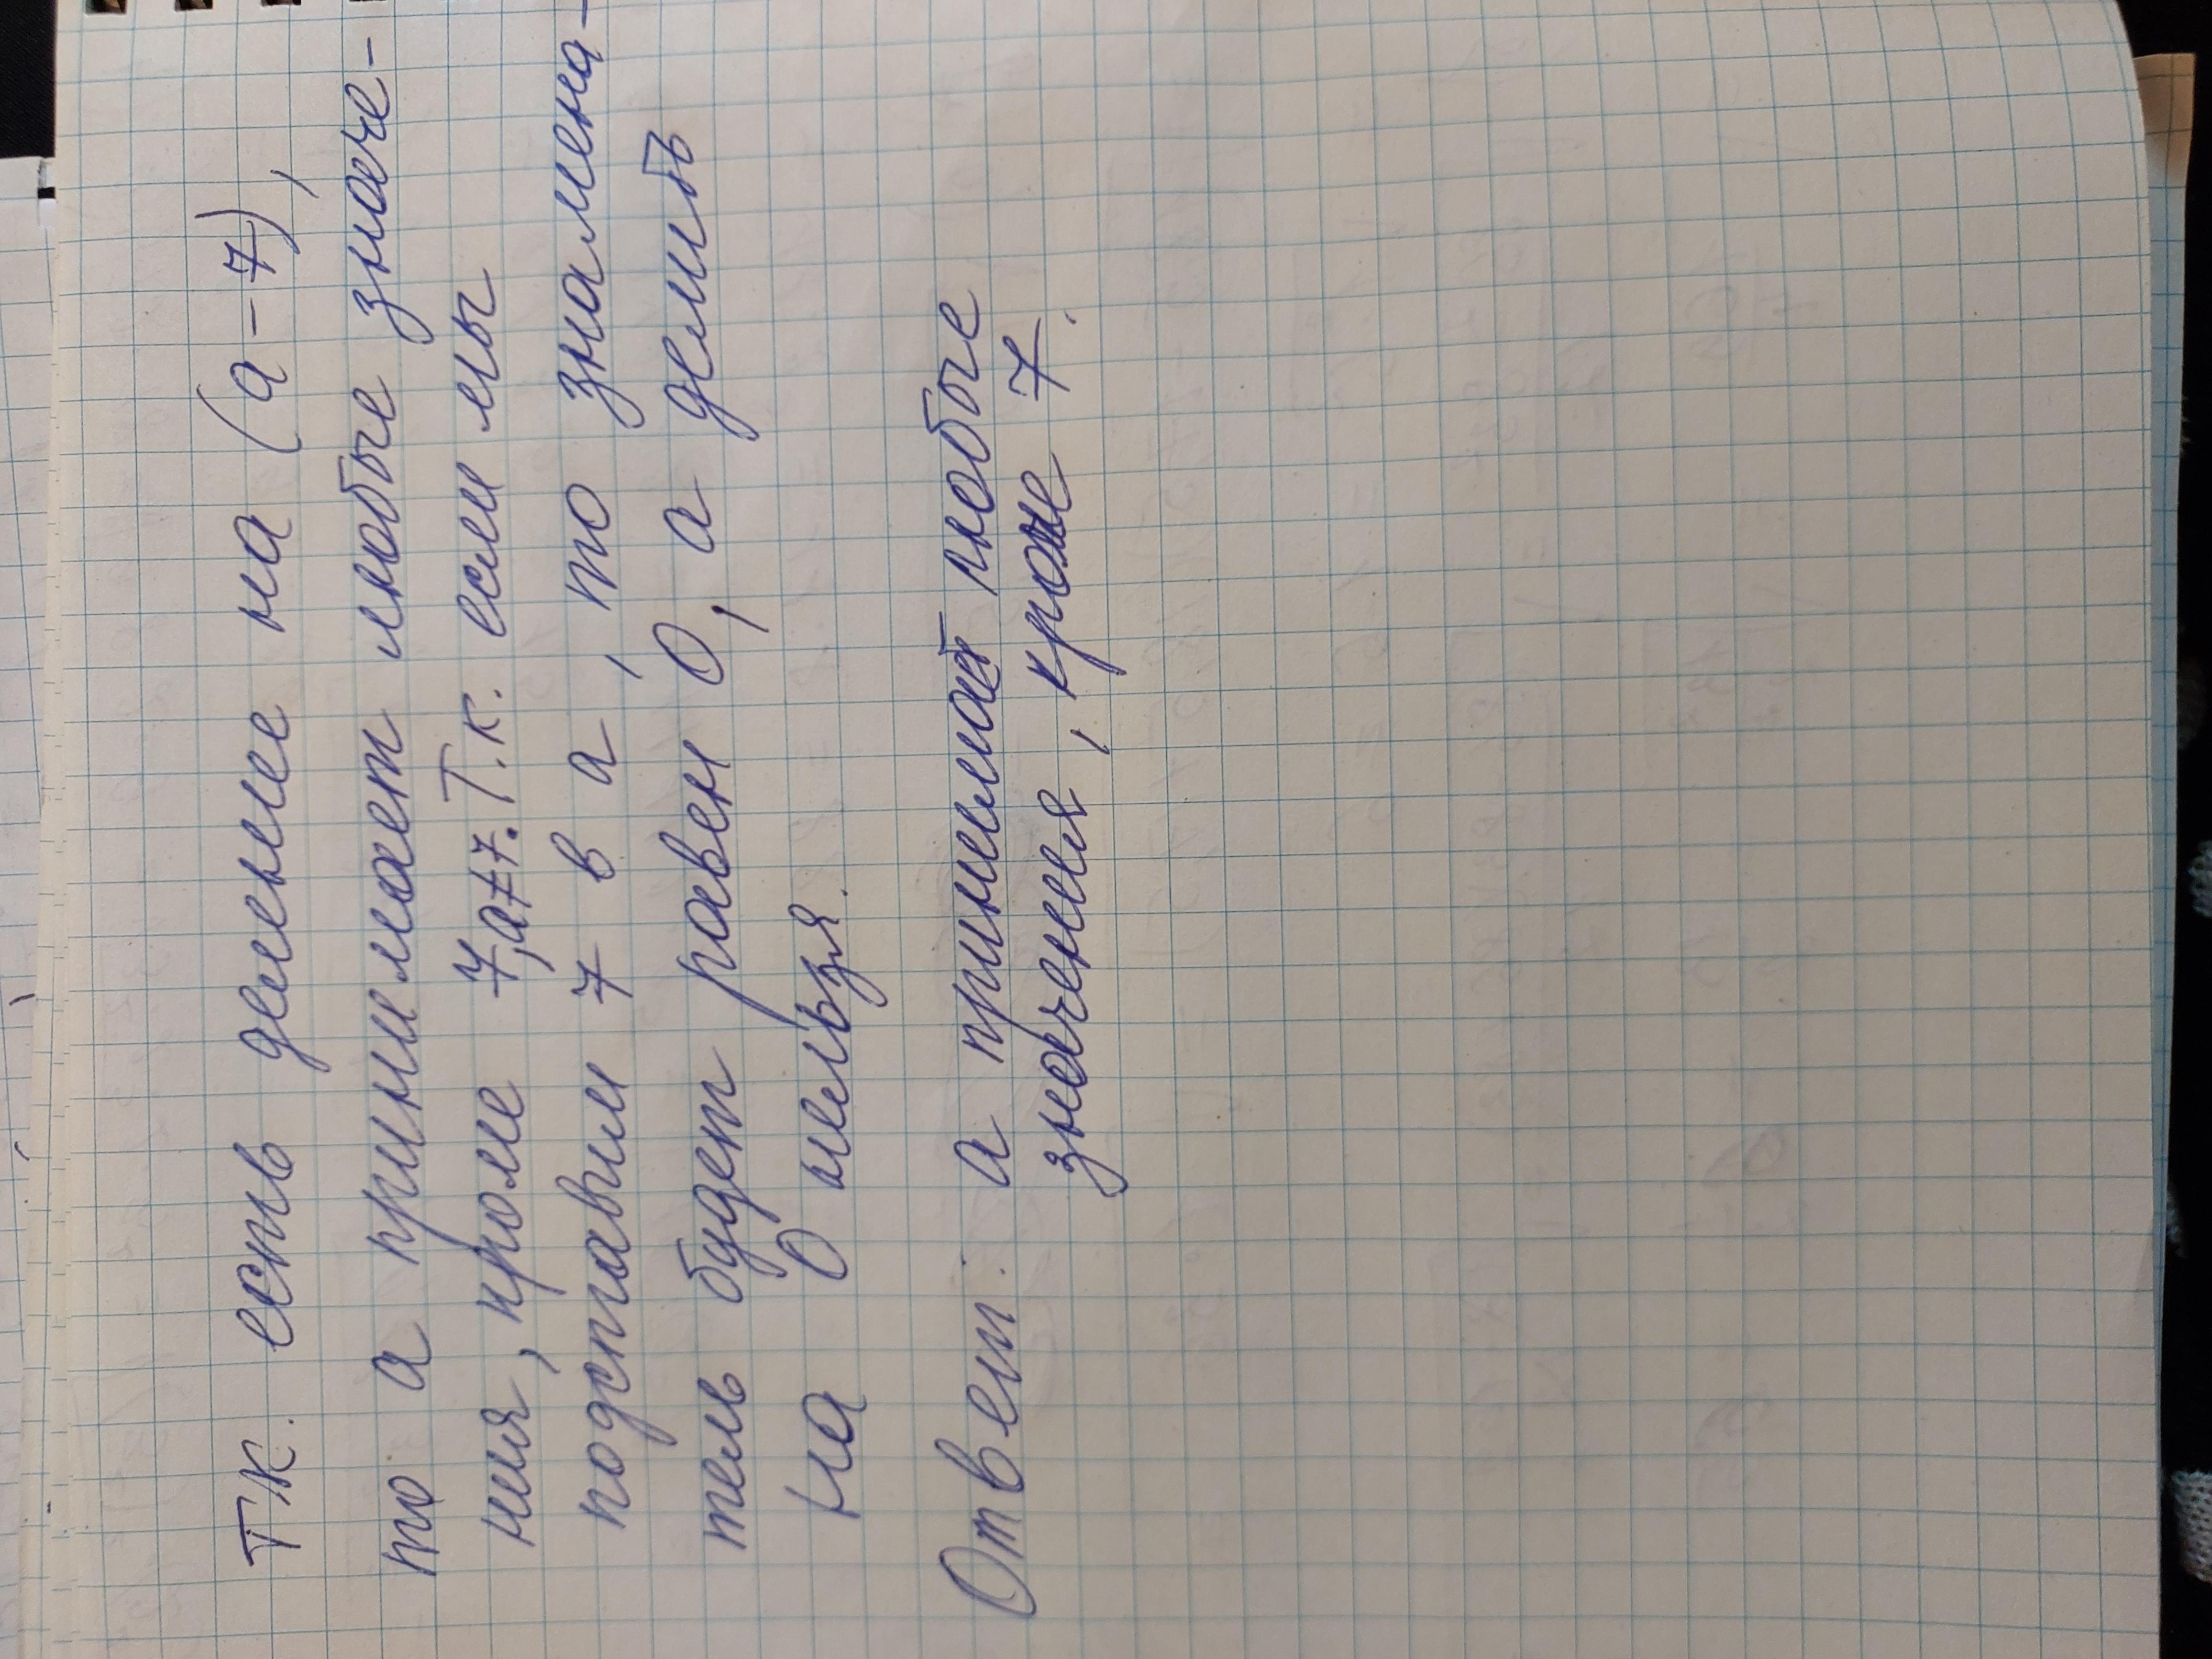 Тк. есть деление на (a-7),
то а принимает любые значе-
ния, кроме 7, a≠7. Т.к. если мы
подставим 7 в а, то знамена-
тель будет равен 0, а делить
на 0 нельзя.
Ответ: а принимает любые
значения, кроме 7.